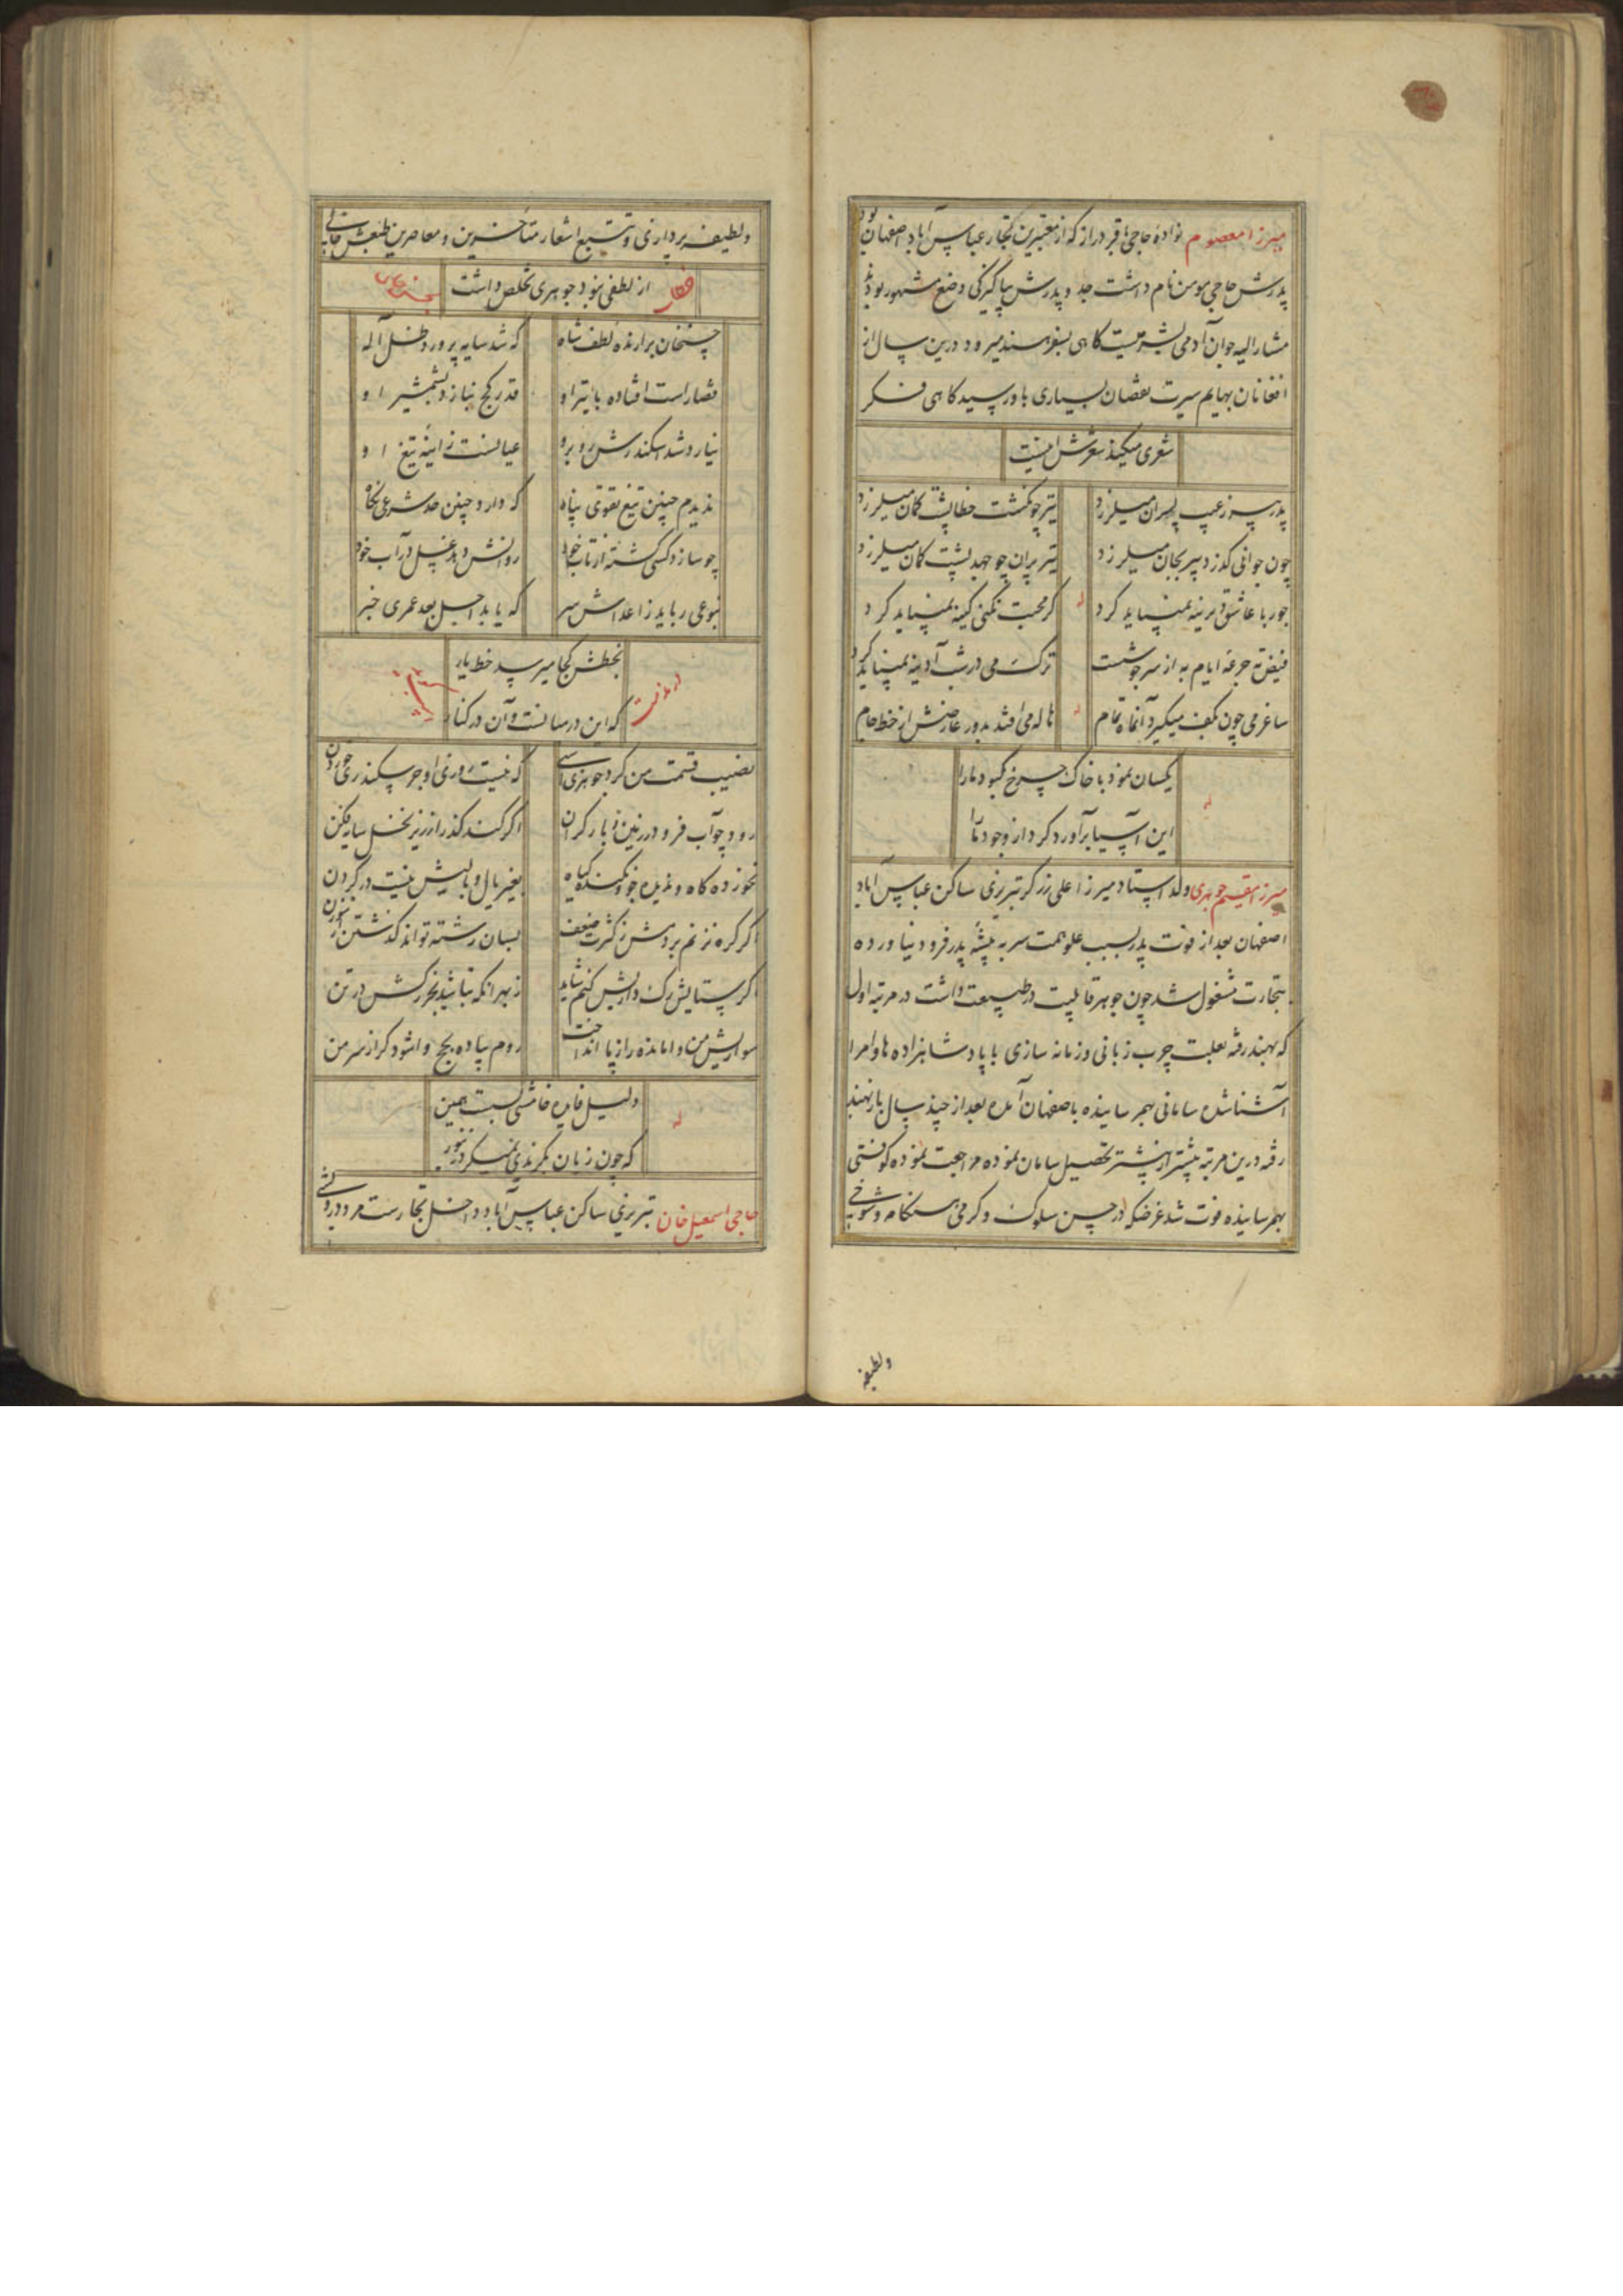 میرزا معصوم نواده حاجی باقر دراز که از معتبرین تجار عباس آباد اصفهان بود
پدرش حاجی مومن نام داشت جد و پدرش بپاکیزگی وضع مشهور بودند
مشار الیه جوان آدمی بسیرتیست گاهی بسفر هند میرود درین سال از
افغانان بهایم سیرت نقصان بسیاری باو رسید گاهی فکر
شعری میکند شعرش اینست
پدر پیر ز عیب پسران میلرزد
تیر چو گشت خطا پشت کمان میلرزد
چون جوانی گذرد پیر بجان میلرزد
تیر پران چو جهد پشت کمان میلرزد
جور با عاشق دیرینه نمیباید کرد
گر محبت نکنی کینه نمیباید کرد
فیض ته جرعه ایام به از سرجوشست
ترک می در شب آدینه نمیباید کرد
ساغر می چون بکف میگیرد آنماه تمام
هاله می افتد بدور عارضش از خط جام
یکسان نمود با خاک چرخ کبود ما را
این آسیا برآورد گرد از وجود ما
میرزا مقیم جوهری ولد استاد میرزا علی زرگر تبریزی ساکن عباس آباد
اصفهان بعد از فوت پدر بسبب علو همت سر به پیشه پدر فرود نیاورده
بتجارت مشغول شد چون جوهر قابلیت در طبیعت داشت در مرتبه اول
که بهند رفته بعلت چرب زبانی و زمانه سازی با پادشاهزاده ها و امرا
آشنا شده سامانی بهم رسانیده باصفهان آمده بعد از چند سال باز بهند
رفته درین مرتبه بیشتر از پیشتر تحصیل سامان نموده مراجعت نموده کوفتی
بهم رسانیده فوت شد غرضکه در حسن سلوک و گرمی هنگامه و شوخی
ولطیفه
ولطیفه پردازی و تتبع اشعار متأخرین و معاصرین طبعش خالی
از لطفی نبود جوهری تخلص داشت
چسان برآرنده لطف شاه
که شد سایه پرورد ظل آله
قضا راست افتاده با تیر او
قدر کج نبازد بشمشیر او
نیارد شد اسکندرش روبرو
عیانست ز آئینه تیغ او
ندیدم چنین تیغ تقوی پناه
که دارد چنین حد شرعی نگاه
چو سازد کسی کشته از تاب خود
روانش دهد غسل در آب خود
بنوعی رباید ز اعداش سر
که یابد اجل بعد عمری خبر
بخطش کجا میرسد خط یار
که این در میانست و آن در کنار
نصیب قسمت من کرد جوهری اسبی
که نیست روزی او جز سکندری خوردن
رود چو آب فرو در زمین ز بار گران
اگر کند گذر از زیر نخل سایه فکن
نخورده کاه و ندیده جو و نکنده گیاه
بغیر بال و بالیش نیست در گردن
اگر گره نزنم بر دمش ز کثرت ضعف
بسان رشته تواند گذشتن از سوزن
اگر ستایش رگ داریش کنم شاید
ز بهر آنکه نباشد بجز رگش در تن
سواریش من وامانده را ز پا انداخت
روم پیاده بحج وا شود گر از سر من
دلیل فایده خامشی بست همین
که چون زبان
حاجی اسمعیل خان تبریزی ساکن عباس آباد داخل تجارست مرد درویشی